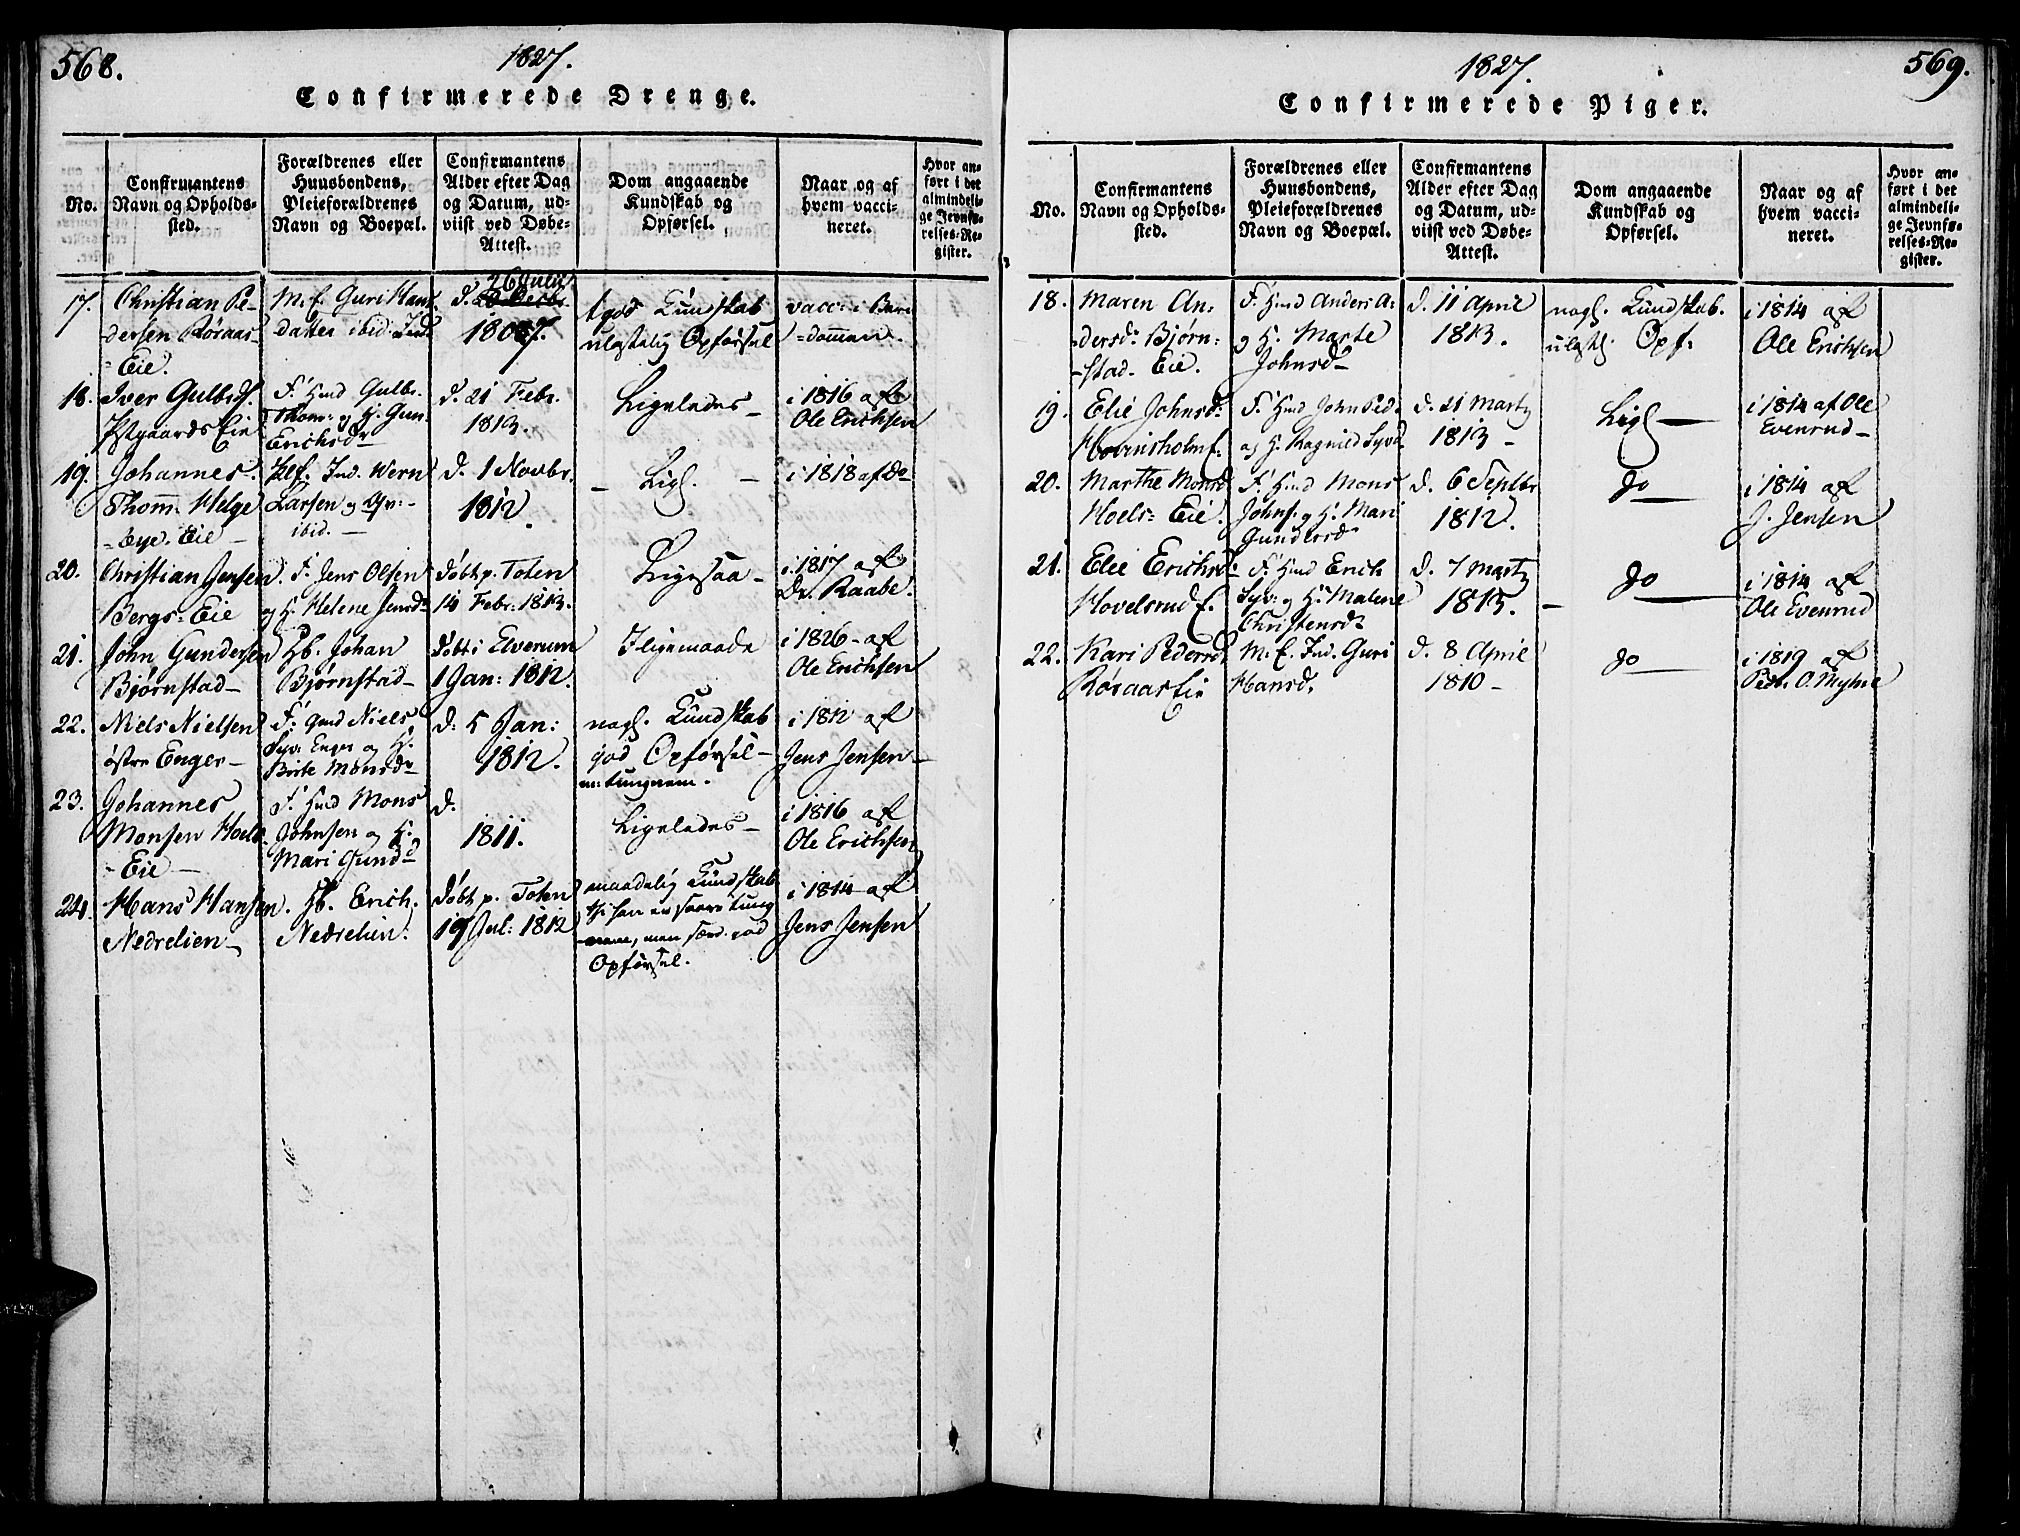 568.
1827.
Confirmerede Drenge.
No.
Confirmantens
Navn og Opholds-
sted.
Forældrenes eller
Huusbondens,
Pleieforældrenes
Navn og Boepæl.
Confirmantens
Alder efter Dag
og Datum, ud-
viist ved Døbe-
Attest.
Dom angaaende
Kundskab og
Opførsel.
Naar og af
hvem vacci-
neret.
Hvor an-
ført i det
almindeli-
ge Jevnfø-
relses-Re-
gister.
17.
Christian Pe-
dersen Röraas-
-Eie.
M. E. Guri Hans
datter ibid. Ind.
26 Julii
1807.
tgod Kundskab
ulastelig Opførsel
vacc: i Barn
-dommen.
18.
Iver Gulbrds.
Eie
F: Hmd Gulbr.
Thom: og H. Gun.
Erichsdr
d. 21 Febr.
1813.
Ligeledes-
i 1816 af
Ole Erichsen
19.
Johannes.
Thom. Helge
-bye. Eie -
Ind. Wern
Larsen og
ibid. -
d. 1 Novbr.
1812.
- Ligl. -
i 1818 af do
20.
Christian Jensen
Bergs-Eie
F. Jens Olsen
og H. Helene Jensdr
döbt p. Toten
14 Febr: 1813.
Ligesaa-
i 1817 af
Dr. Raabe.
21.
John Gundersen
Bjørnstad-
Hb. Johan
Bjørnstad-
döbt i Elverum
1 Jan: 1812.
Iligemaade
i 1826- af
Ole Erichsen
22.
Niels Nielsen
östre Enger-
F. Gmd Niels
Syv: Enger og H.
Birte Monsdr
d. 5 Jan:
1812.
nogl. Kundskab
god Opførsel-
m: tungnem.
i 1812 af
Jens Jensen-
23.
Johannes
Monsen Hoels
-Eie-
F. Hmd Mons
Johnsen og H.
Mari Gundd
d.
1811.
Ligeledes-
i 1816 af
Ole Erichsen
24.
Hans Hansen.
Nedrelien-
Hb. Erich.
Nedrelien.
döbt p. Toten
19 Jul: 1812
maadelig Kundskab
thi han er saare tung
-nem, men god
Opførsel.
i 1814 af
Jens Jensen
569.
1827.
Confirmerede Piger.
No.
Confirmantens
Navn og Opholds-
sted.
Forældrenes eller
Huusbondens,
Pleieforældrenes
Navn og Boepæl.
Confirmantens
Alder efter Dag
og Datum, ud-
viist ved Døbe-
Attest.
Dom angaaende
Kundskab og
Opførsel.
Naar og af
hvem vacci-
neret.
Hvor an-
ført i det
almindeli-
ge Jevnfø-
relses-Re-
gister.
18.
Maren An-
dersd: Bjørn-
-stad. Eie.
F. Hmd Anders A:
og H. Marte
Johnsd-
d. 11 April
1813.
nogl. Kundskab.
ulastl. Opf:
i 1814 af
Ole Erichsen
19.
Elie Johnsd:
Hovinsholm E.
F. Hmd John Ped.
og H. Ragnild Syvd.
d. 21 Marty
1813-
Ligl-
i 1814 af Ole
Evenrud-
20.
Marthe Monsd
Hoels- Eie.
F. Hmd Mons
Johns: og H. Mari
Gundersdr
d. 6 Septbr
1812.
do
i 1814 af
J. Jensen
21.
Elie Erichsd:
Hovelsrud E.
F. Hmd Erich
Syv: og H. Malene
Christensdr
d. 7 Marty
1813.
do
i 1814 af
Ole Evenrud
22.
Kari Pedersd
Röraas Eie
M. E. Ind. Guri
Hansd.
d. 8 April
1810-
do
i 1819 af
Peder O. Myhre